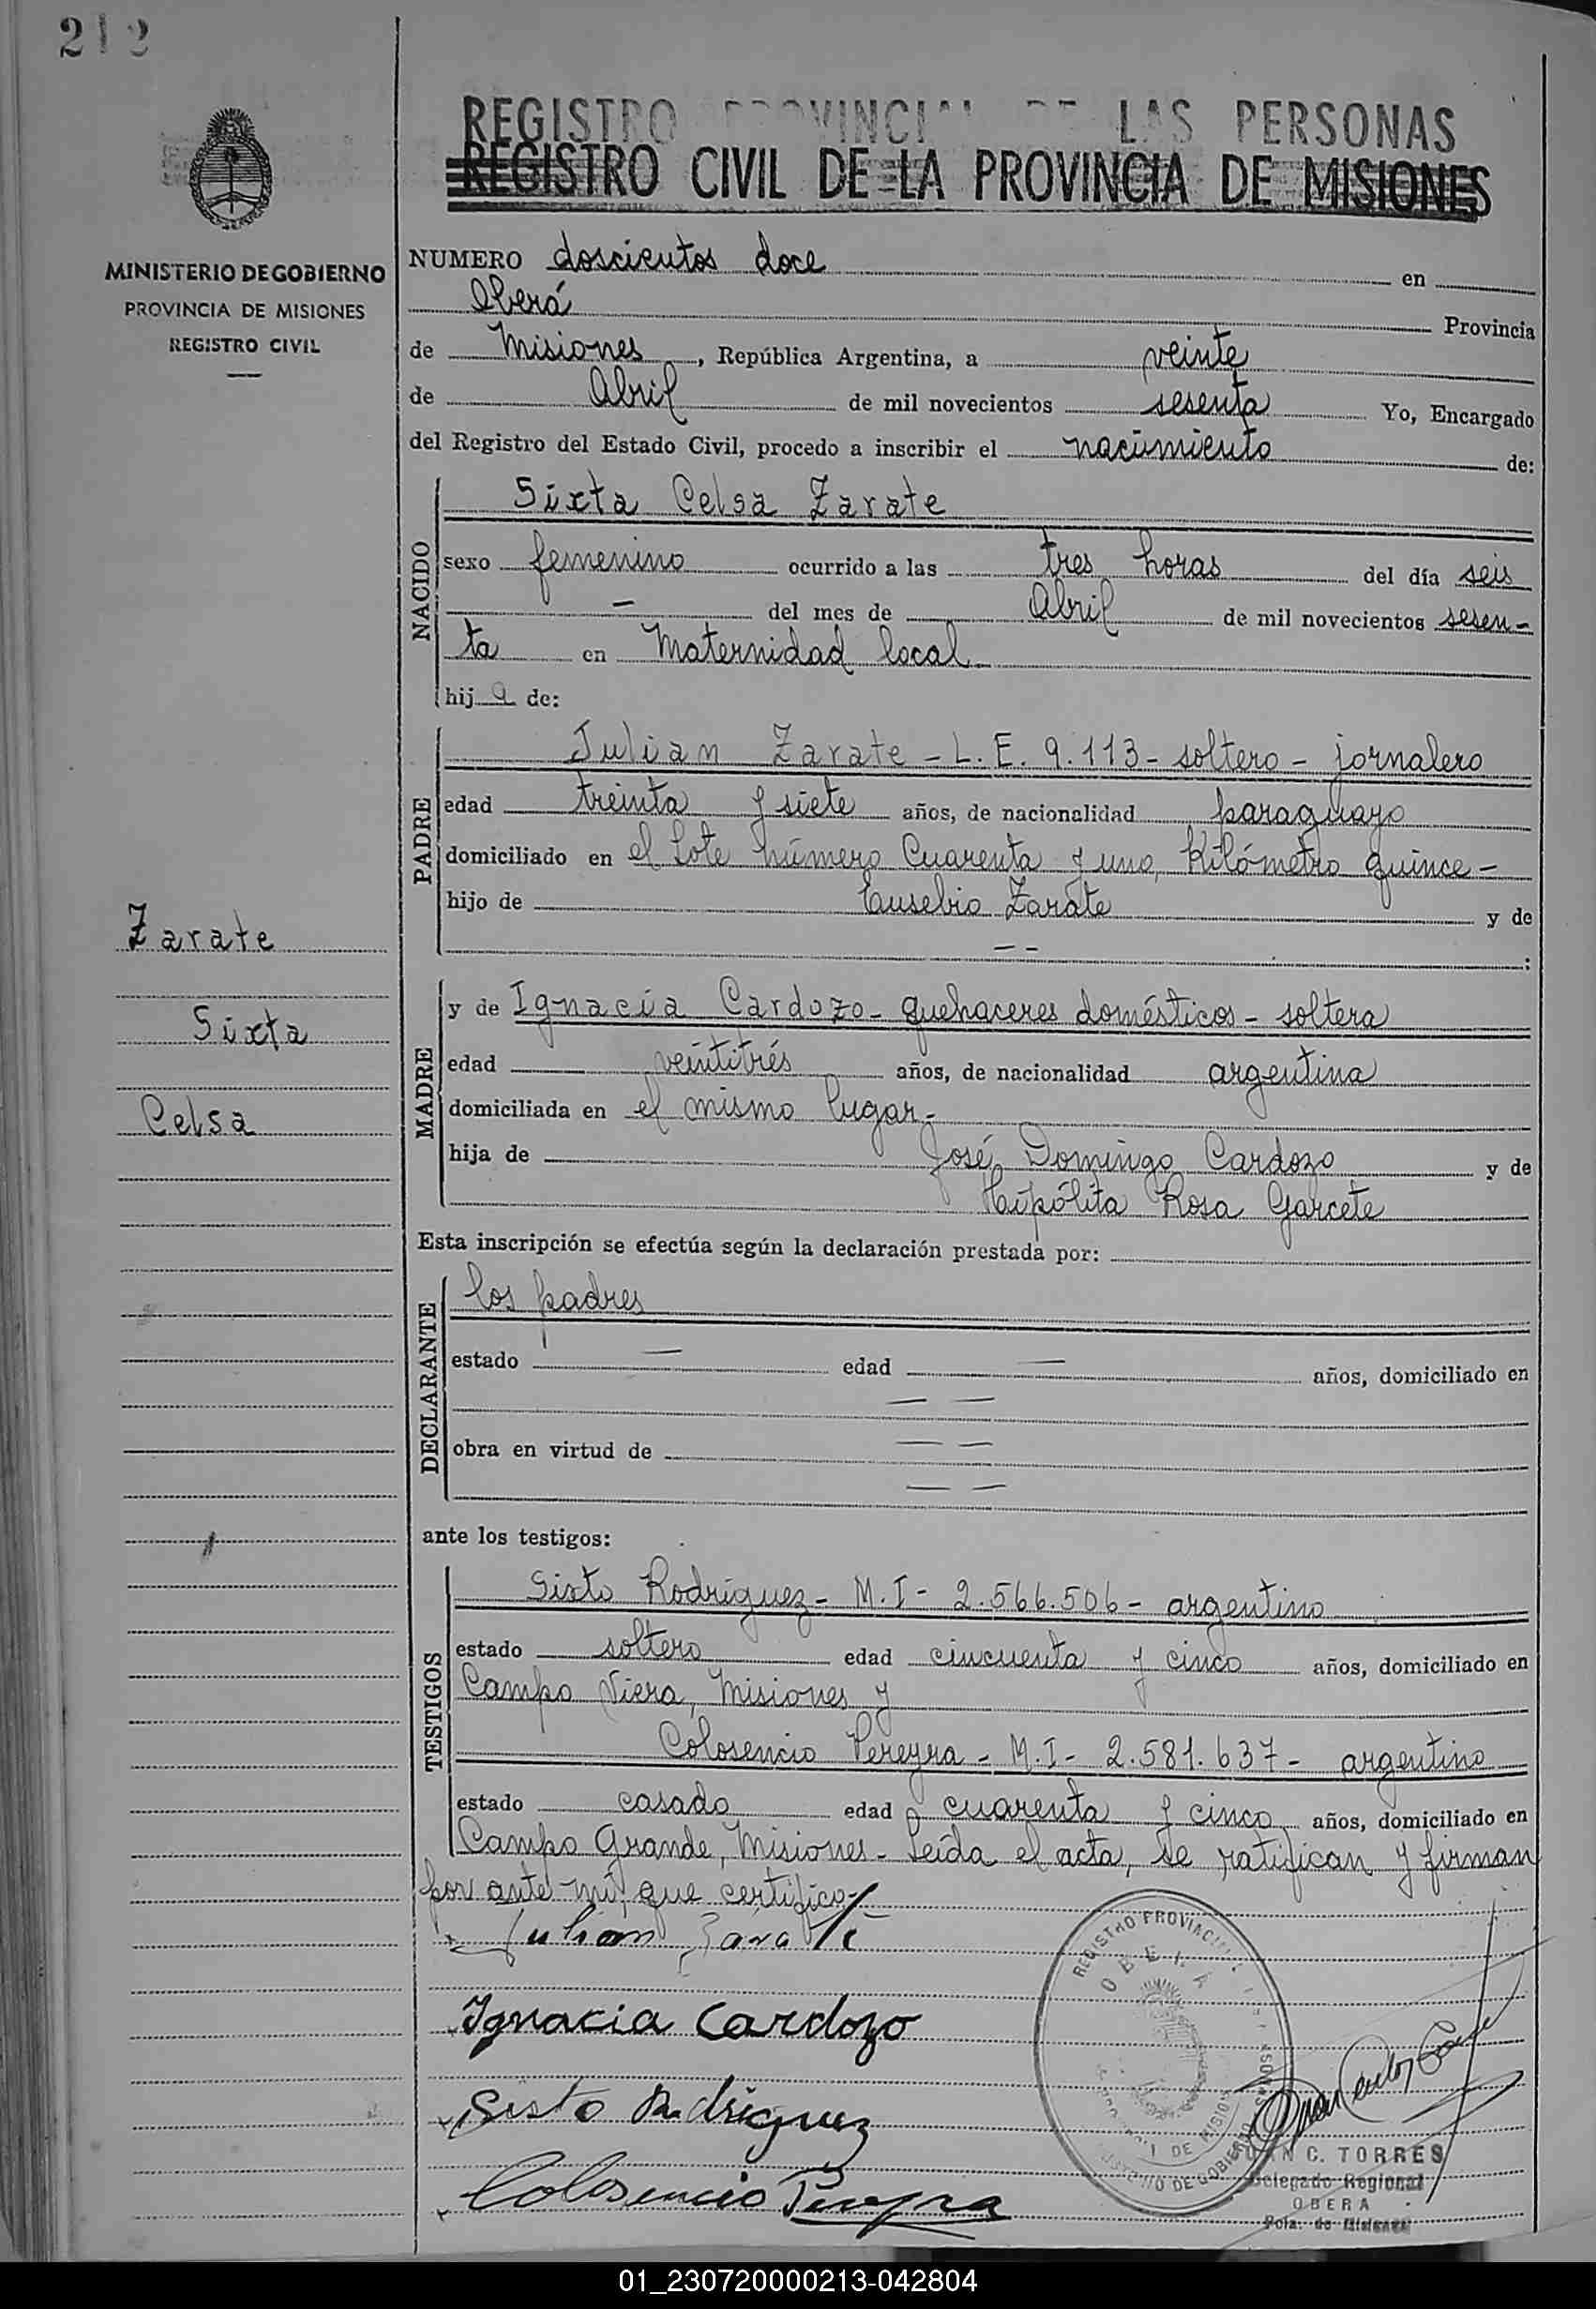 212
REGISTRO PROVINCIAL DE LAS PERSONAS
REGISTRO CIVIL DE LA PROVINCIA DE MISIONES
MINISTERIO DE GOBIERNO
PROVINCIA DE MISIONES
REGISTRO CIVIL
NUMERO doscientos doce en
Oberá Provincia
de Misiones, República Argentina, a veinte
de Abril de mil novecientos sesenta Yo, Encargado
del Registro del Estado Civil, procedo a inscribir el nacimiento de:
NACIDO
Sixta Celsa Zarate
sexo femenino ocurrido a las tres horas del día seis
— del mes de Abril de mil novecientos sesen-
ta en Maternidad local.
hija de:
PADRE
Julian Zarate - L. E. 9.113 - soltero - jornalero
edad treinta y siete años, de nacionalidad paraguayo
domiciliado en el Lote número Cuarenta y uno, Kilómetro quince -
hijo de Eusebio Zarate y de
— — ;
Zarate
Sixta
Celsa
MADRE
y de Ignacia Cardozo - quehaceres domésticos - soltera
edad veintitrés años, de nacionalidad argentina
domiciliada en el mismo lugar.
hija de José Domingo Cardozo y de
Hipólita Rosa Garcete
Esta inscripción se efectúa según la declaración prestada por:
DECLARANTE
los padres
estado — edad — años, domiciliado en
— —
obra en virtud de — —
— —
ante los testigos:
TESTIGOS
Sixto Rodríguez - M. I - 2.566.506 - argentino
estado soltero edad cincuenta y cinco años, domiciliado en
Campo Viera, Misiones y
Colosencio Pereyra - M. I - 2.581.637 - argentino
estado casado edad cuarenta y cinco años, domiciliado en
Campo Grande, Misiones - Leída el acta, se ratifican y firman
por ante mí, que certifico.
Julian Zarate
Ignacia Cardozo
Sisto Rodriguez
Colosencio Pereyra
REGISTRO PROVINCIAL
OBERÁ
DE MISIONES
MINISTERIO DE GOBIERNO
JUAN C. TORRES
Delegado Regional
OBERA
Pcia. de Misiones
01_230720000213-042804